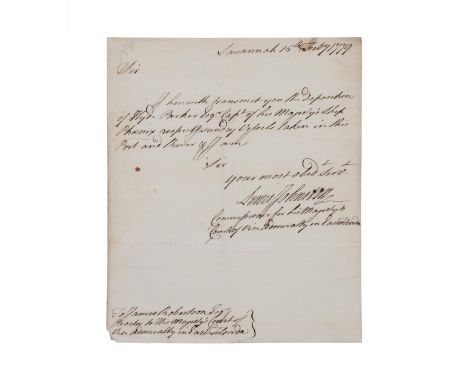 Savannah 15th Feby 1779
Sir
I herewith transmit you the Deposition
of Hyde Parker Esqr. Captn. of his Majesty's Ship
Phœnix respectg sundry Vessels taken in this
Port and River & I am
Sir
your most obedt. Servt.
Lewis Johnston
Commissioner for his Majesty's
Court of Vice Admiralty in East Florida
To James Robertson Esqr.
Proctor to His Majesty's Court of
Vice Admiralty in East Florida